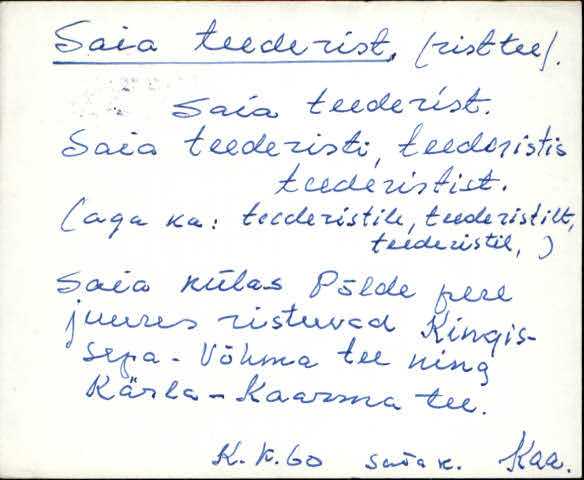 Saia teederist, (risttee).
Saia teederist.
Saia teederisti, teederistis
teederistist.
(aga ka: teederistile, teederistilt,
teederistil,)
Saia külas Põlde pere
juures ristuvad Kingis-
sepa - Võhma tee ning
Kärla - Kaarma tee.
K. k. 60 Saia k. Kaa.